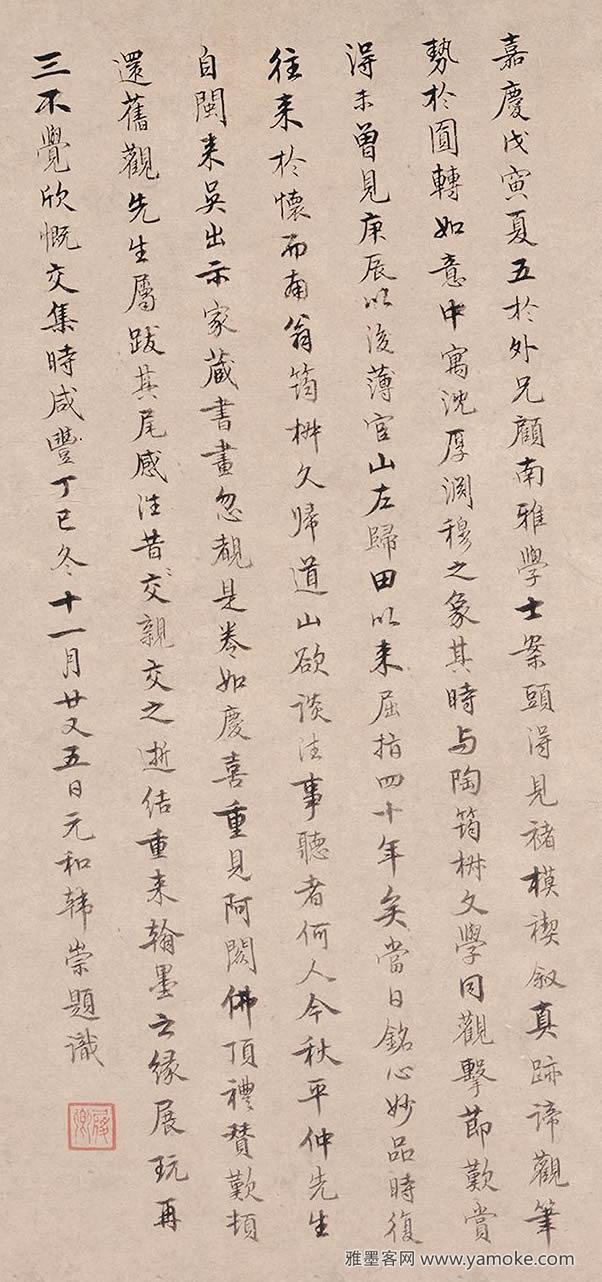 嘉慶戊寅夏五於外兄顧南雅學士案頭得見褚模禊敘真跡諦觀筆
勢於圓轉如意中寓沈厚淵穆之象其時与陶筠椒文學同觀擊節歎賞
得未曾見庚辰以後薄宦山左歸田以來屈指四十年矣當日銘心妙品時復
往来於懷而南翁筠椒久歸道山欲談往事聽者何人今秋平仲先生
自閩来吳出示家藏書畫忽覩是卷如慶喜重見阿閦佛頂禮贊歎頓
還舊觀先生屬跋其尾感往昔交親交之逝結重来翰墨之緣展玩再
三不覺欣慨交集時咸豐丁巳冬十一月廿又五日元和韩崇題識
履卿
雅墨客网 www.yamoke.com